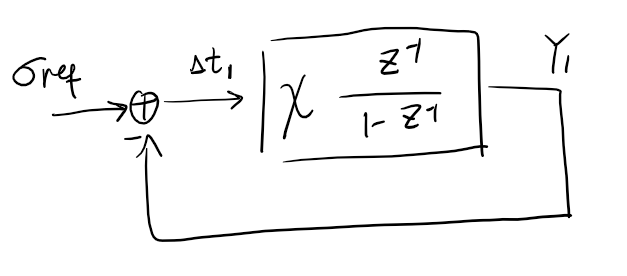 σref
Δt₁
χ z⁻¹ / 1 - z⁻¹
Y₁
-